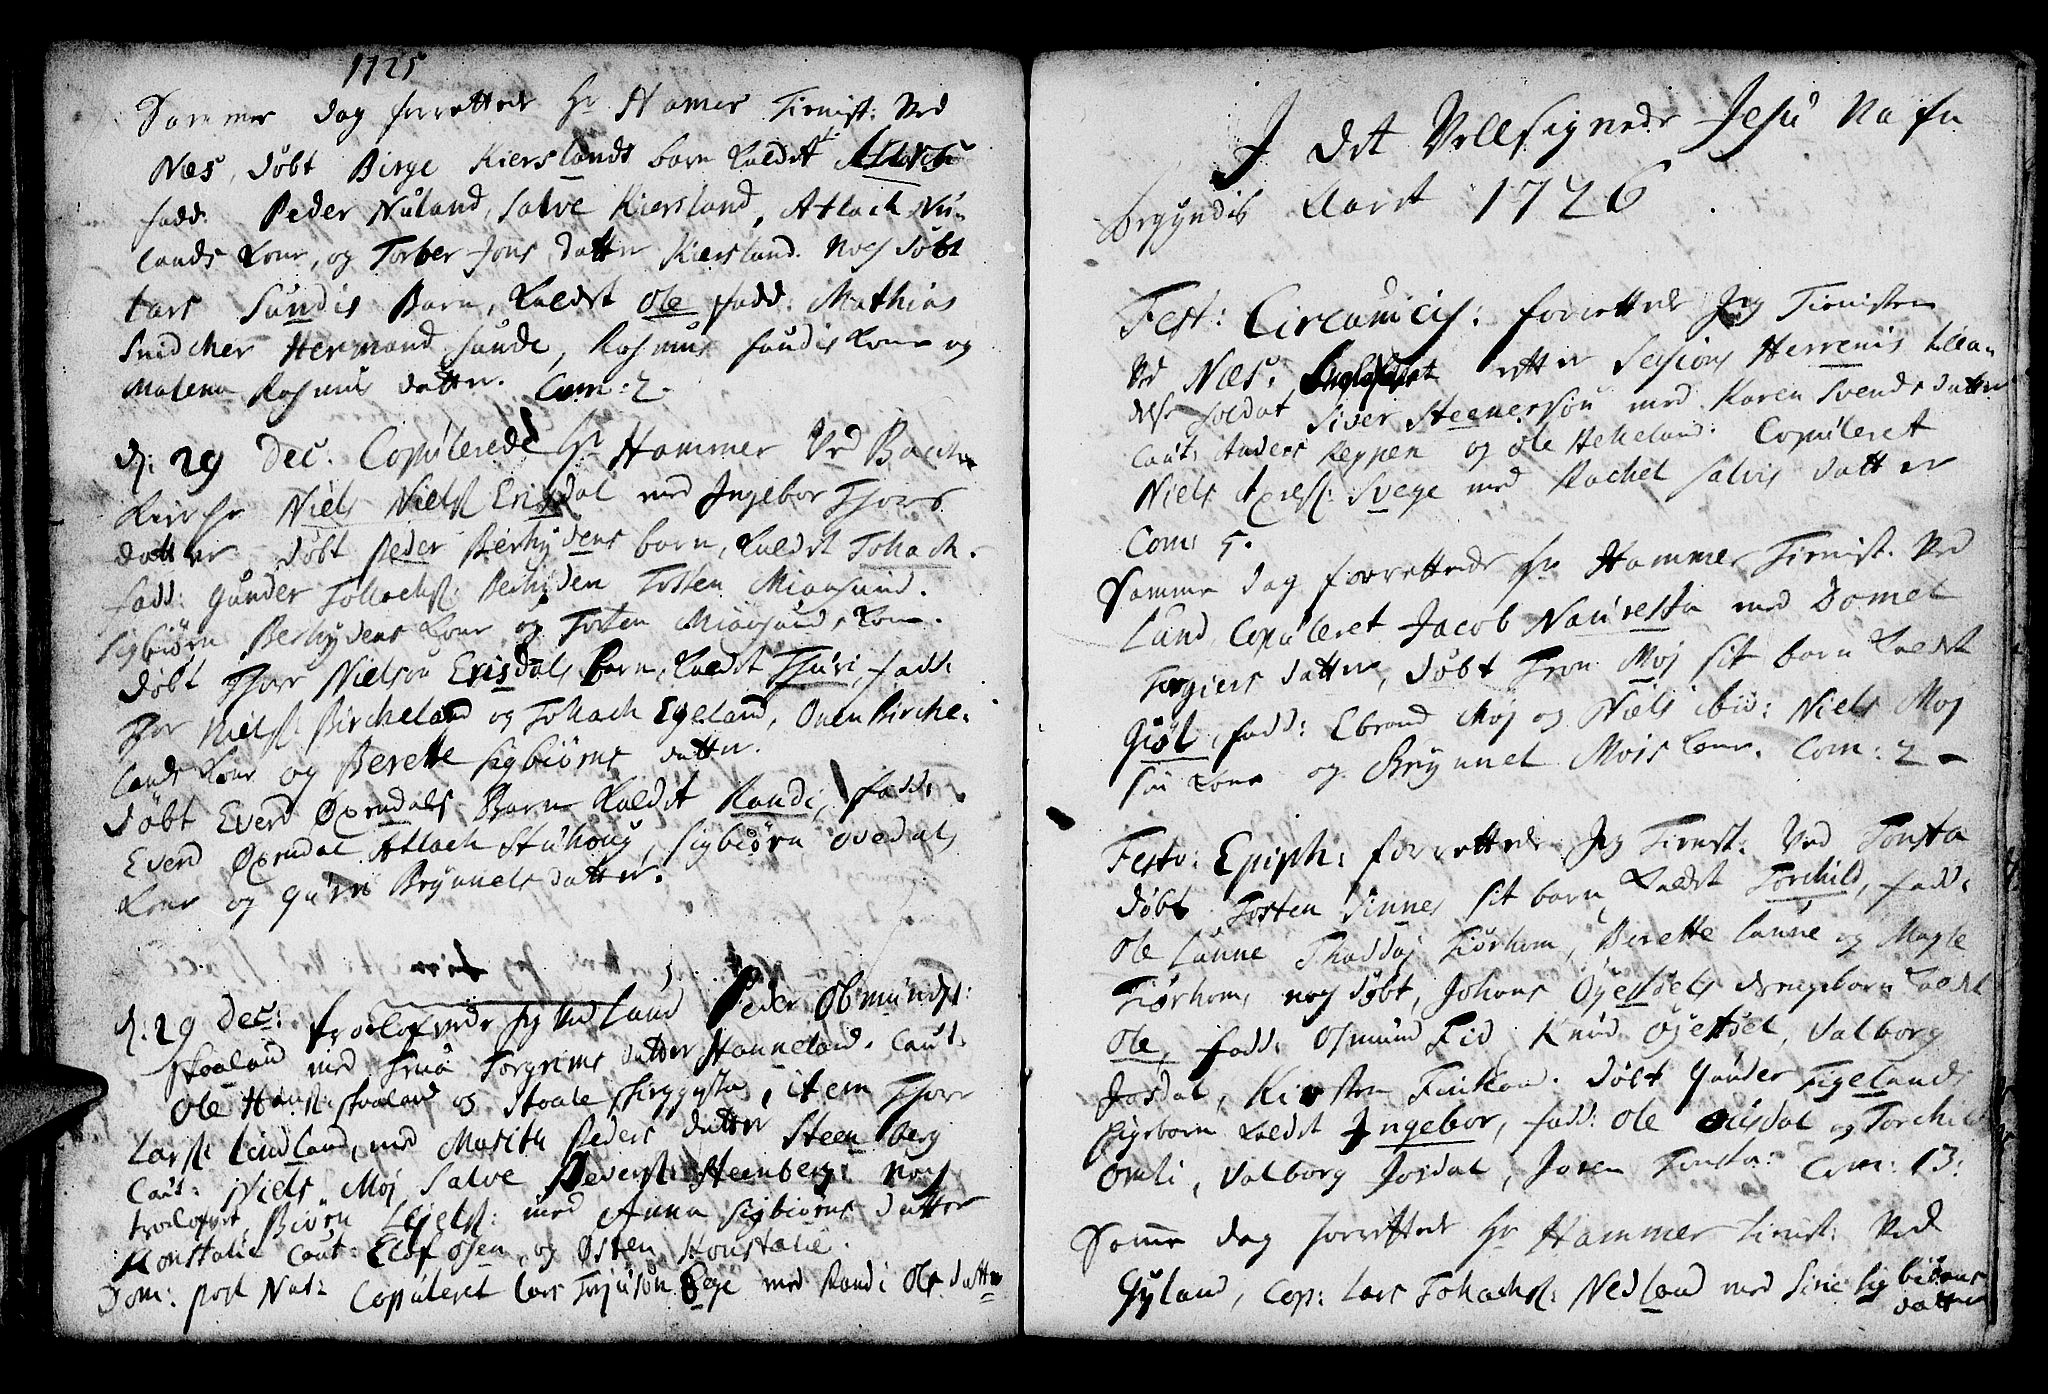 1725
Sammer dag forrettede Hr Hamer Tienist: Ved
Næs, døbt Birge Kierslands barn kaldet
fadd: Peder Nuland, Salve Kiersland, Atlach Nu-
lands Kone, og Torber Jons datter Kiersland. Noch døbt
Lars Sundis Barn, kaldet Ole fadd: Mathias
Snidcher Hermand Sunde, Rasmus Sundis Kone og
Malena Rasmus datter. Com: 2.
d: 29 Dec. Copulerede Hr Hammer Ved Bache
Kirche Niels Nielss Erisdal med Ingebor Thors
datter døbt Peder Berhydens barn, kaldet Tollach.
fadd: Gunder Tollachs: Berhyden Tosten Miaasund.
Sigbiørn Berhydens Kone og Tosten Miaasunds Kone.
døbt Thore Nielson Erisdals Barn, kaldet Thuri, fadd:
Thor Nielss: Bircheland og Tollach Egeland, Ouen Birche-
lands Kone og Berette Sigbiørns datter.
døbt Everd Øxendals Barn kaldet Randi, fadd:
Everd Øxendal Atlach Stuhoug, Sigbiørn Ovedals
Kone og Guri Brynnels datter.
d: 29 Dec: troelofvede Jeg Ved Lund Peder Obmunds:
Skaaland med Trua Torgrims datter Hanneland. Caut:
Ole Hans: Skaaland og Staale Skeggesta, item Thore
Larss: Lindland, med Marith Peders datter Steenberg
Caut: Niels Moj Salve Peders: Steenberg: Noch
trolofvet, Biørn Ejels: med Anna Sigbiørns datter
Konstalie Caut: Elof Osen, og Østen Konstalie.
Dom: post Nat: Copuleret Lars Torjuson Ege med Randi Ols datter
I det Vellsignede Jesu Nafn
begyndis Aaret 1726.
Fest: Circumcis: forrettede Jeg Tienisten
Ved Næs. etter Sessions Herrenis tilla-
delse soldat Siver Steenersøn med Karen Svends datter
Caut: Anders Reppen og Ole Hekeland: Copuleret
Niels Axelss: Svege med Rachel Salvis datter
Com: 5.
Samme dag forrettede Hr Hammer Tienist. Ved
Lund Copuleret Jacob Nauresta med Domet
Torgiers datter, døbt Tron Moj sit barn kaldet
Giøl, fadd: Ebrand Moj og Niels ibid: Niels Moj
sin Kone og Brynnel Mois Kone. Com: 2 -
Festo: Epiph: forrettede Jeg Tienst: Ved Tonsta
døbt Tosten Sinnes sit barn kaldet Torchild, fadd:
Ole Laune Thaddaj Tiørhom, Berette Laune og Magle
Tiørhom, noch døbt, Johans Øyesøels drengebarn kaldet
Ole, fadd: Osmund Eid, Knud Øyesøel, Valborg
Josdal, Kirsten Finkon. døbt Gunder Figelands
pigebarn kaldet Ingebor, fadd: Ole Ousdal og Torchild
Omli, Valborg Josdal, Joren Tonsta: Com: 13:
Samme dag forrettede Hr Hammer tienst: Ved
Gyland, Cop: Lars Tollachs: Nedland med Sirie Sigbiørns
datter